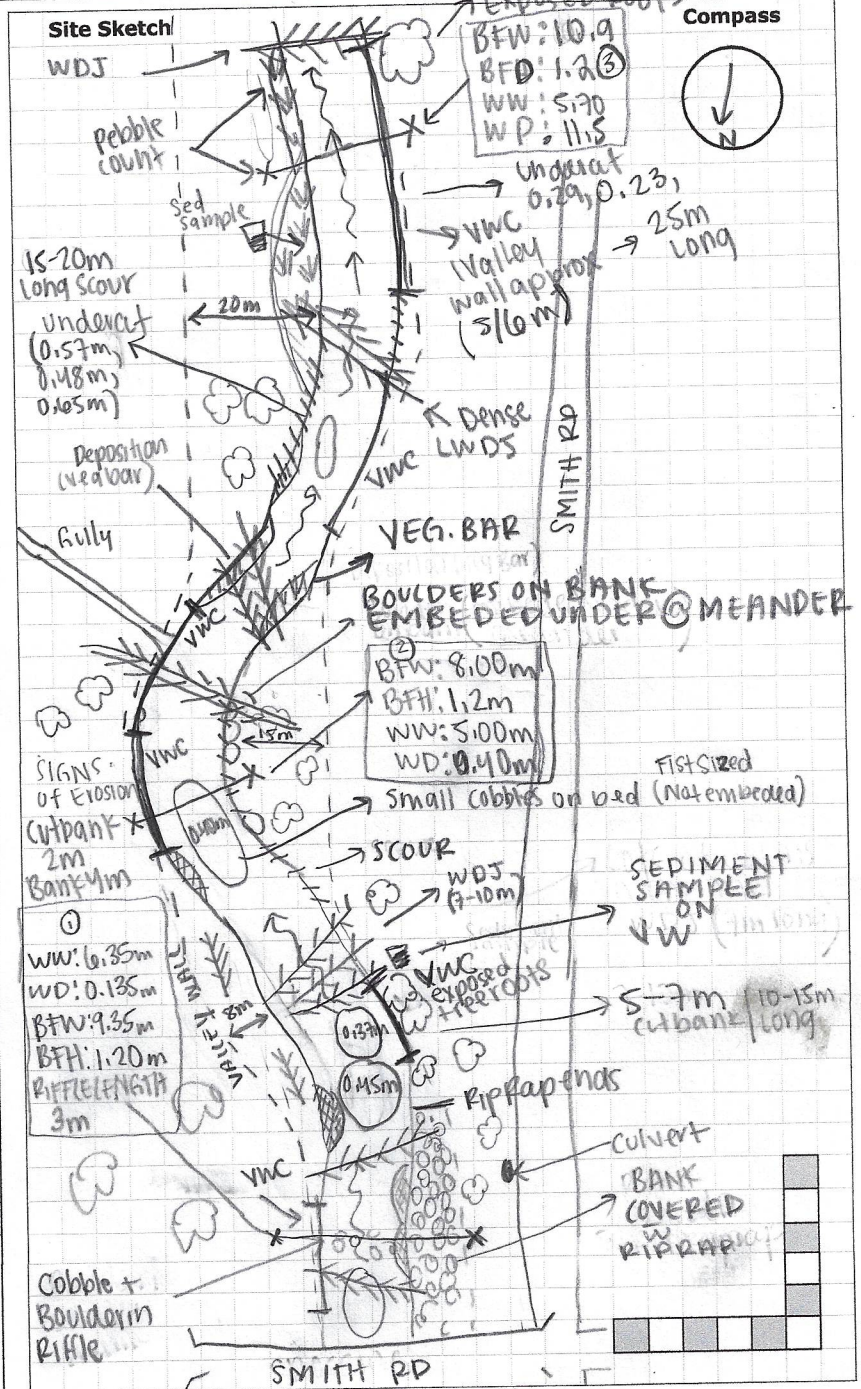 Site Sketch
Compass
N
WDJ
BFW: 10.9
BFD: 1.2 ③
WW: 5.70
WP: 11.5
Pebble
count
Undercut
0.29, 0.23,
Sed
Sample
VWC
(Valley
wall approx
(5/6m)
25m
Long
15-20m
Long Scour
Undercut
(0.57m,
0.48m,
0.65m)
20m
Dense
LWDS
VWC
SMITH RD
Deposition
(vegbar)
Gully
VEG. BAR
BOULDERS ON BANK
EMBEDED UNDER @ MEANDER
VWC
②
BFW: 8.00m
BFH: 1.2m
WW: 5.00m
WD: 0.40m
15m
VWC
SIGNS
of Erosion
Cutbank
2m
Bank 4m
Fist Sized
Small cobbles on bed (Not embeded)
SCOUR
WDJ
(7-10m)
SEDIMENT
SAMPLE
ON
VW
①
WW: 6.35m
WD: 0.135m
BFW: 9.35m
BFH: 1.20m
RIFFLE LENGTH
3m
VALLEY WALL
8m
VWC
exposed
treeroots
5-7m
Cutbank
10-15m
Long
0.37m
0.45m
RipRap ends
VWC
Culvert
BANK
COVERED
W
RIPRAP
Cobble +
Boulder in
Riffle
SMITH RD